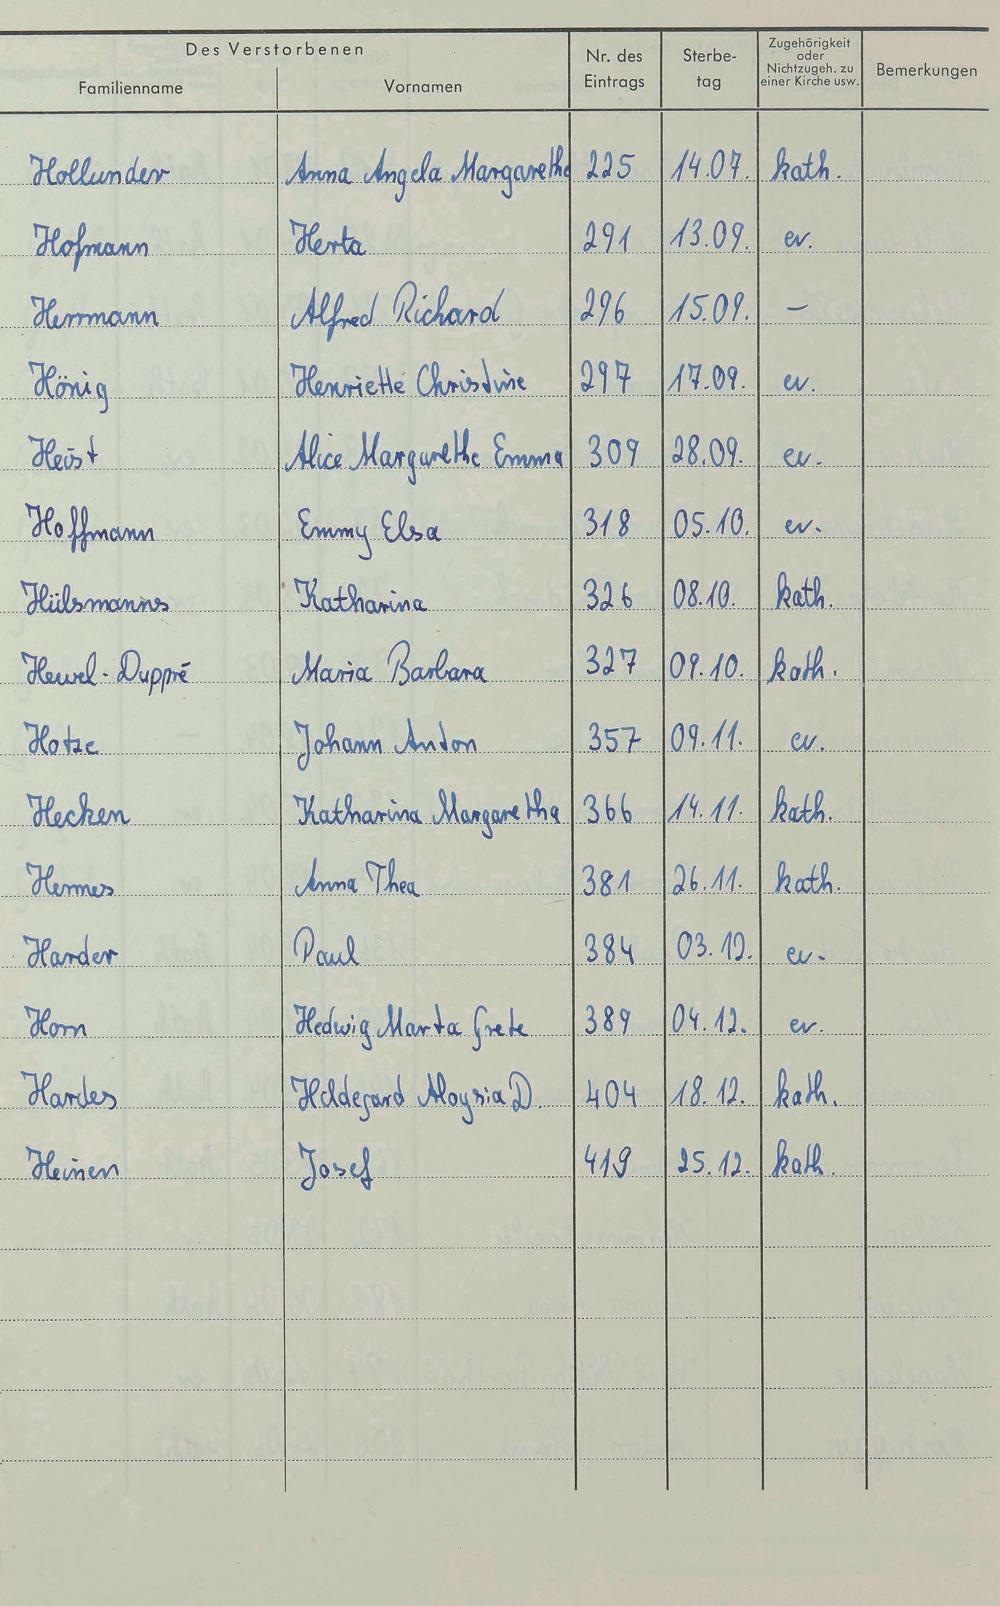 Des Verstorbenen
Familienname Vornamen Nr. des Eintrags Sterbe- tag Zugehörigkeit oder Nichtzugeh. zu einer Kirche usw. Bemerkungen
Hollunder Anna Angela Margaretha 225 14.07. kath.
Hofmann Herta 291 13.09. ev.
Herrmann Alfred Richard 296 15.09. –
Hönig Henriette Christine 297 17.09. ev.
Heist Alice Margarethe Emma 309 28.09. ev.
Hoffmann Emmy Elsa 318 05.10. ev.
Hülsmanns Katharina 326 08.10. kath.
Hewel-Duppré Maria Barbara 327 09.10. kath.
Hotze Johann Anton 357 09.11. ev.
Hecken Katharina Margaretha 366 14.11. kath.
Hermes Anna Thea 381 26.11. kath.
Harder Paul 384 03.12. ev.
Horn Hedwig Marta Grete 389 04.12. ev.
Hardes Hildegard Aloysia D. 404 18.12. kath.
Heinen Josef 419 25.12. kath.